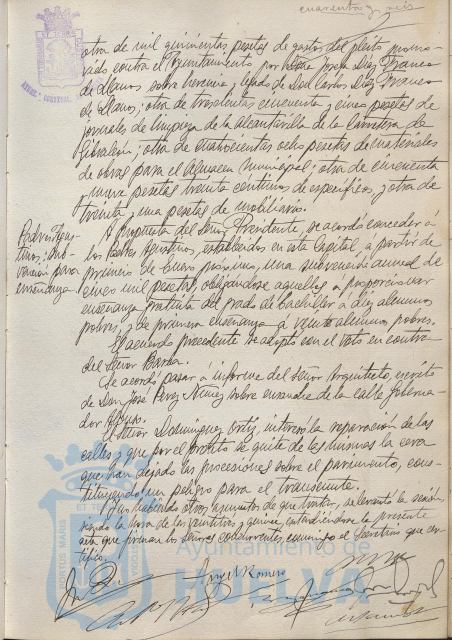 cuarenta y seis
otra de mil quinientas pesetas de gastos del pleito promo-
vido contra el Ayuntamiento por Doña Josefa Díaz Franco
de Llanos sobre herencia y legado de Don Carlos Díaz Franco
de Llanos; otra de trescientas cincuenta y cinco pesetas de
jornales de limpieza de la alcantarilla de la Carretera de
Gibraleón; otra de cuatrocientas ocho pesetas de materiales
de obras para el Almacen Municipal; otra de cincuenta
y nueve pesetas treinta céntimos de específicos, y otra de
treinta y una pesetas de mobiliario.
Padres Agus-
tinos: sub-
vención para
enseñanza
A propuesta del Señor Presidente, se acordó conceder á
los Padres Agustinos, establecidos en esta Capital, a partir de
primero de Enero próximo, una subvención anual de
cinco mil pesetas, obligándose aquellos a proporcionar
enseñanza gratuita del grado de bachiller a diez alumnos
pobres, y de primera enseñanza a veinte alumnos pobres.
El acuerdo precedente se adoptó con el voto en contra
del Señor Barba.
Se acordó pasar á informe del Señor Arquitecto, escrito
de Don José Pérez Núñez sobre ensanche de la calle Goberna-
dor Alonso.
El Señor Domínguez Ortiz, interesó la reparación de las
calles, y que por el pronto se quite de las mismas la cera
que han dejado las procesiones sobre el pavimento, cons-
tituyendo un peligro para el transeunte.
Y no habiendo otros asuntos de que tratar, se levantó la sesión,
siendo la hora de las veintitres y quince, extendiéndose la presente
acta que firman los Señores concurrentes, conmigo el Secretario que cer-
tifico.
Ayuntamiento de
HUELVA